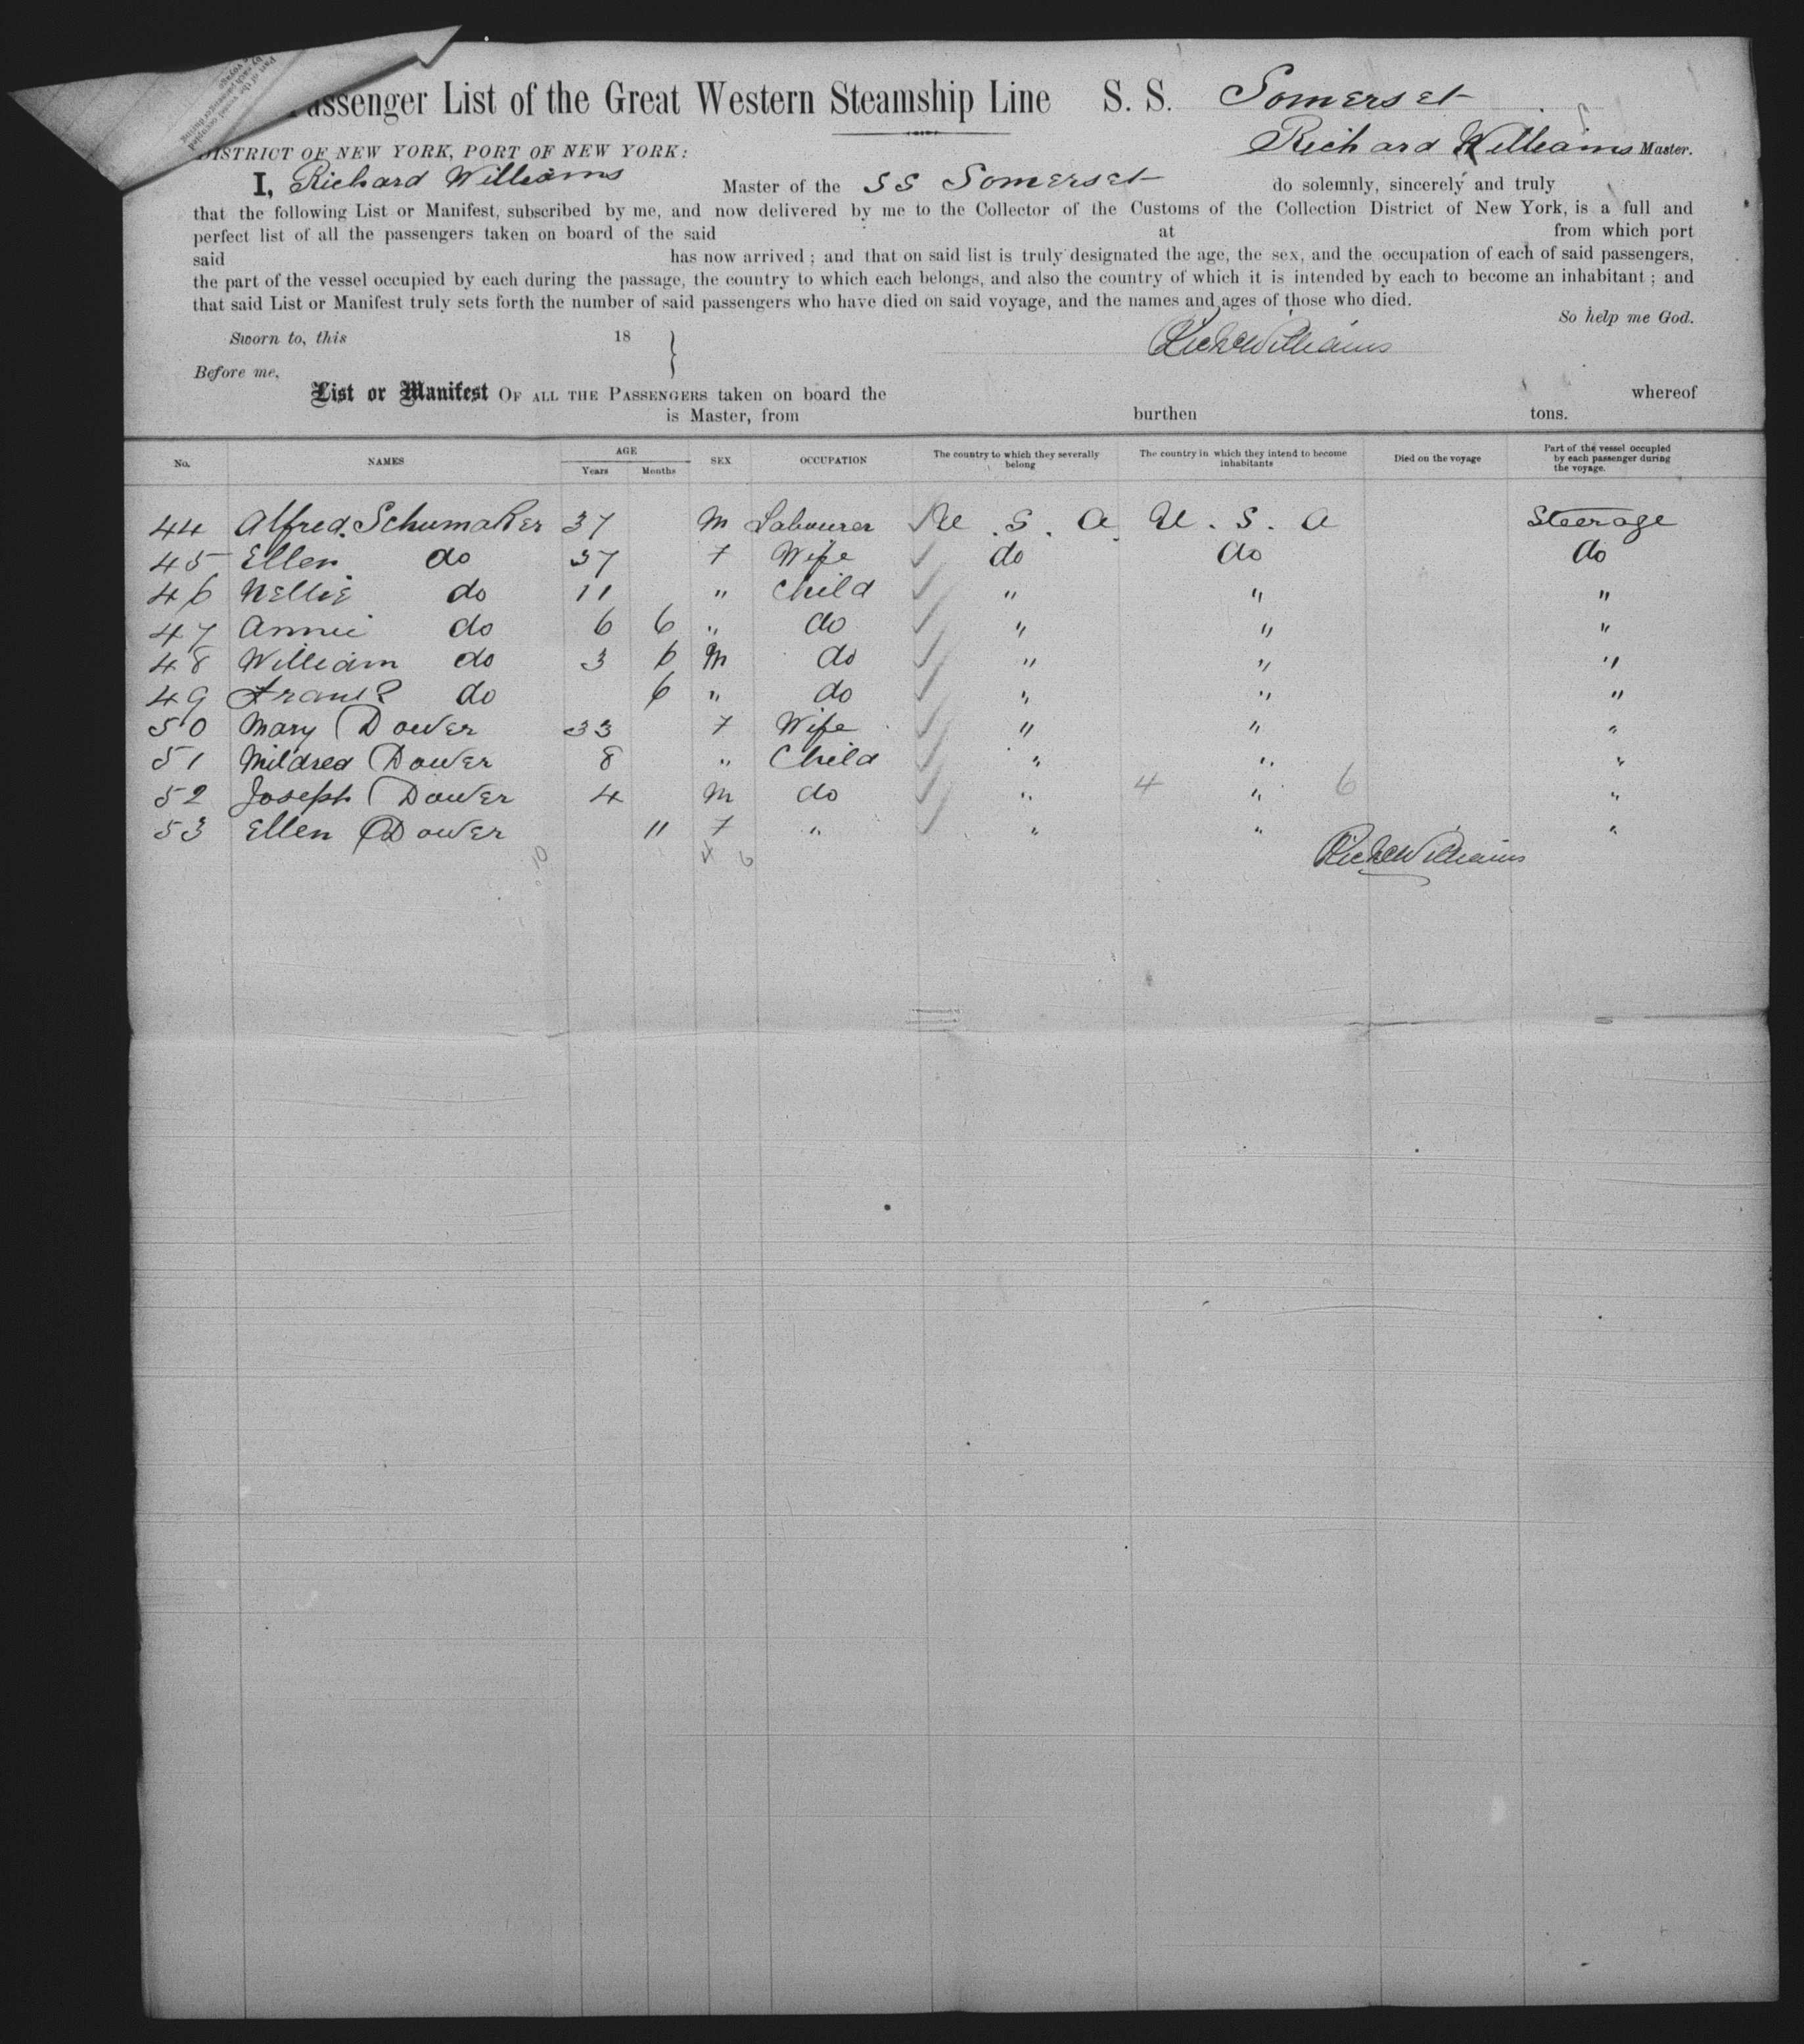 Passenger List of the Great Western Steamship Line S. S. Somerset
Richard Williams Master.
DISTRICT OF NEW YORK, PORT OF NEW YORK:
I, Richard Williams Master of the SS Somerset do solemnly, sincerely and truly
that the following List or Manifest, subscribed by me, and now delivered by me to the Collector of the Customs of the Collection District of New York, is a full and
perfect list of all the passengers taken on board of the said at from which port
said has now arrived; and that on said list is truly designated the age, the sex, and the occupation of each of said passengers,
the part of the vessel occupied by each during the passage, the country to which each belongs, and also the country of which it is intended by each to become an inhabitant; and
that said List or Manifest truly sets forth the number of said passengers who have died on said voyage, and the names and ages of those who died.
So help me God.
Sworn to, this 18
Richd Williams
Before me,
List or Manifest OF ALL THE PASSENGERS taken on board the whereof
is Master, from burthen tons.
No. NAMES AGE Years Months SEX OCCUPATION The country to which they severally belong The country in which they intend to become inhabitants Died on the voyage Part of the vessel occupied by each passenger during the voyage.
44 Alfred Schumaker 37 M Labourer U. S. A. U. S. A Steerage
45 Ellen do 37 F Wife do do do
46 Nellie do 11 " Child " " "
47 Annie do 6 6 " do " " "
48 William do 3 6 M do " " "
49 Frank do 6 " do " " "
50 Mary Dower 33 F Wife " " "
51 Mildred Dower 8 " Child " " "
52 Joseph Dower 4 M do " 4 " 6 "
53 Ellen Dower 11 F " " " "
10 4 6
Richd Williams